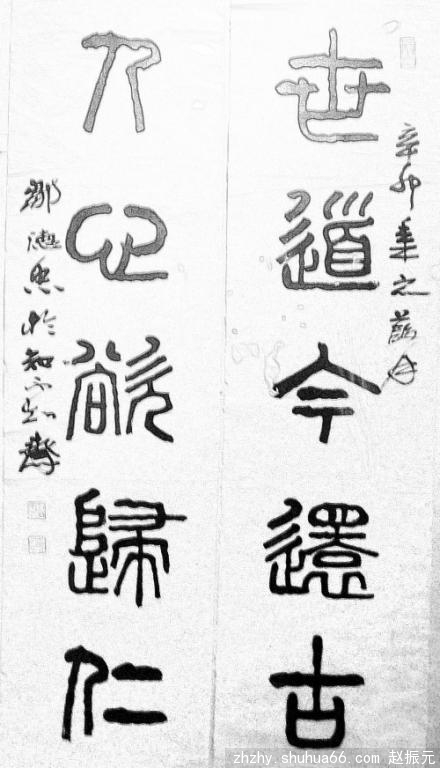 世道今還古
人心欲歸仁
辛卯年之荔月
鄒德忠於知不知齋
zhzhy.shuhua66.com 赵振元